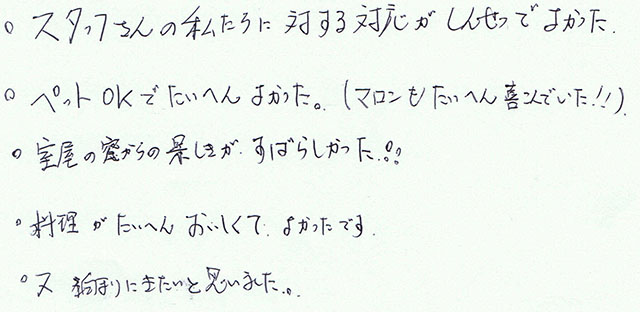 ○ スタッフさんの私たちに対する対応がしんせつでよかった.
○ ペットOKでたいへんよかった。(マロンもたいへん喜こんでいた!!).
○ 室屋の窓からの景しきがすばらしかった.!!
○ 料理がたいへんおいしくて.よかったです.
○ 又 泊まりにきたいと思いました。